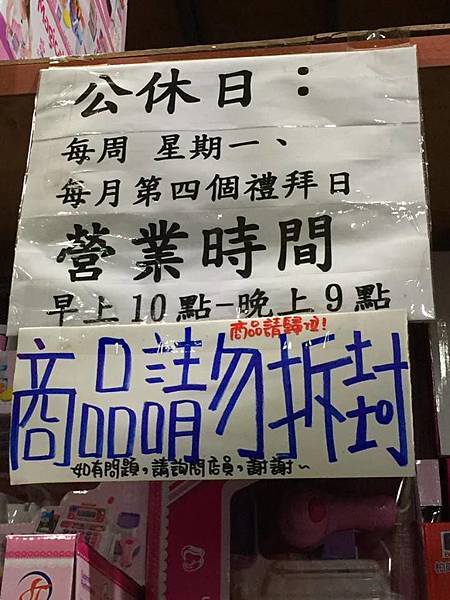 公休日：
每周 星期一、
每月第四個禮拜日
營業時間
早上10點-晚上9點
商品請歸位!
商品請勿拆封
如有問題，請詢問店員，謝謝~